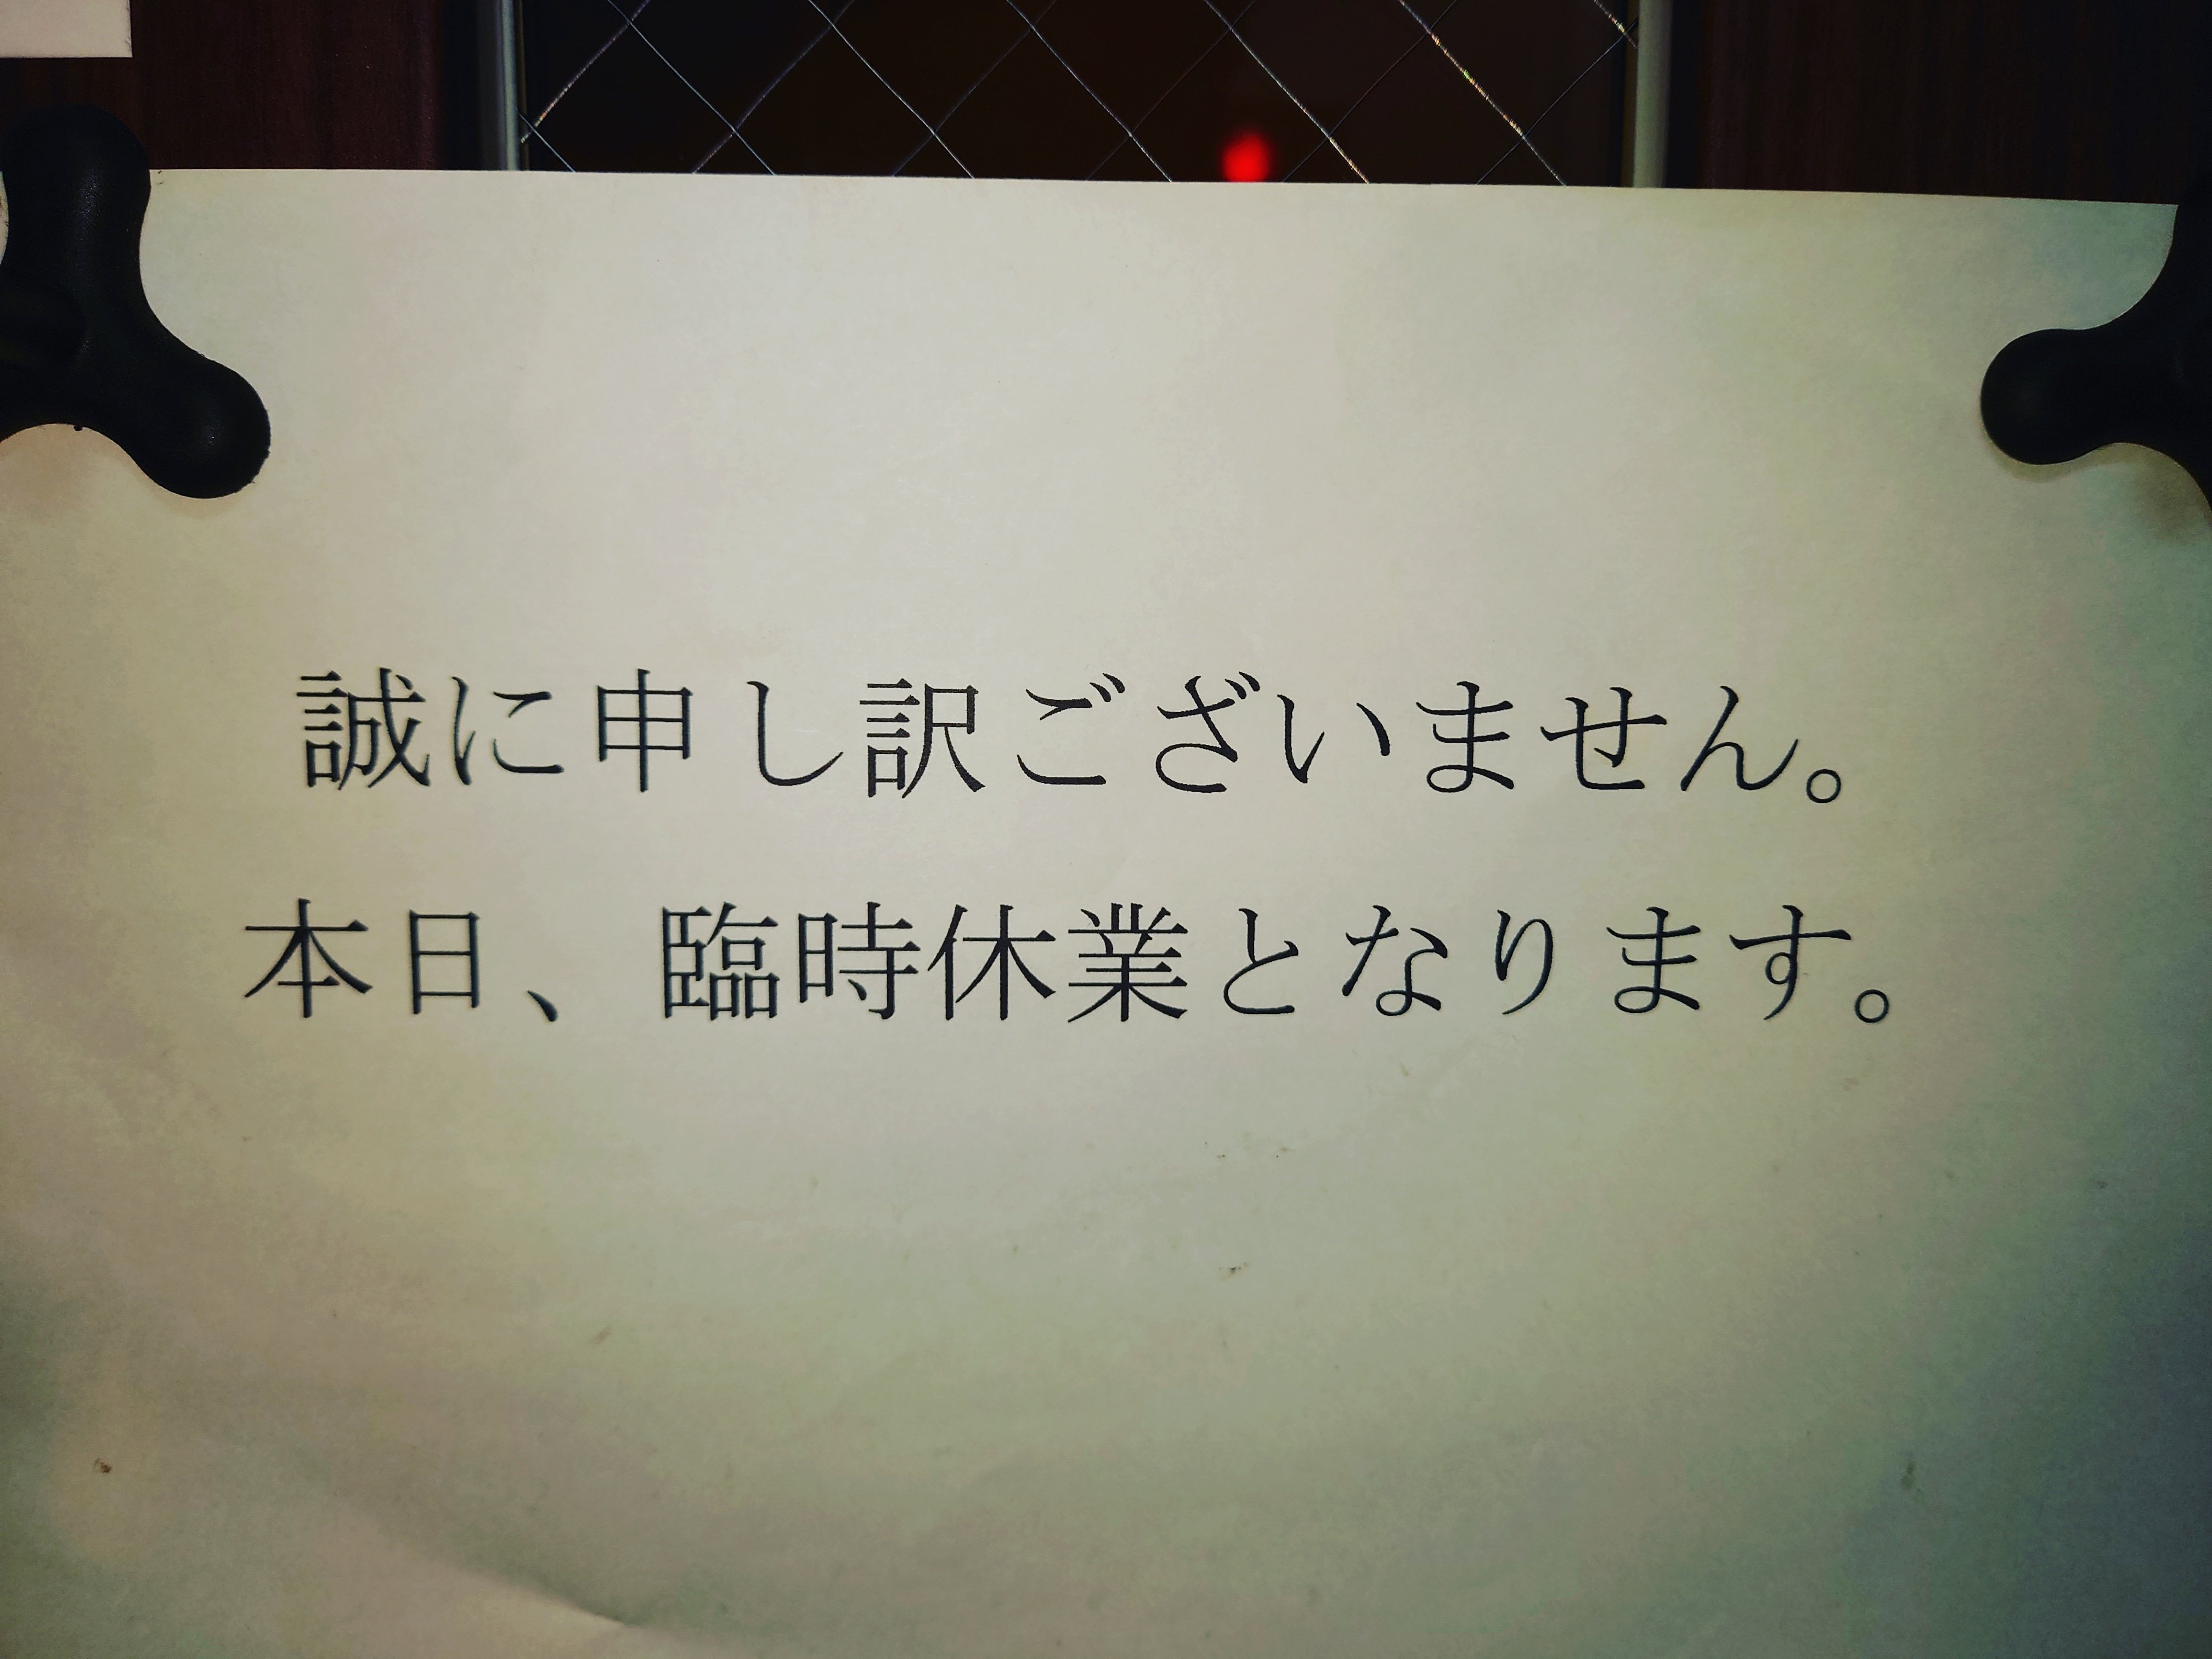 誠に申し訳ございません。
本日、臨時休業となります。